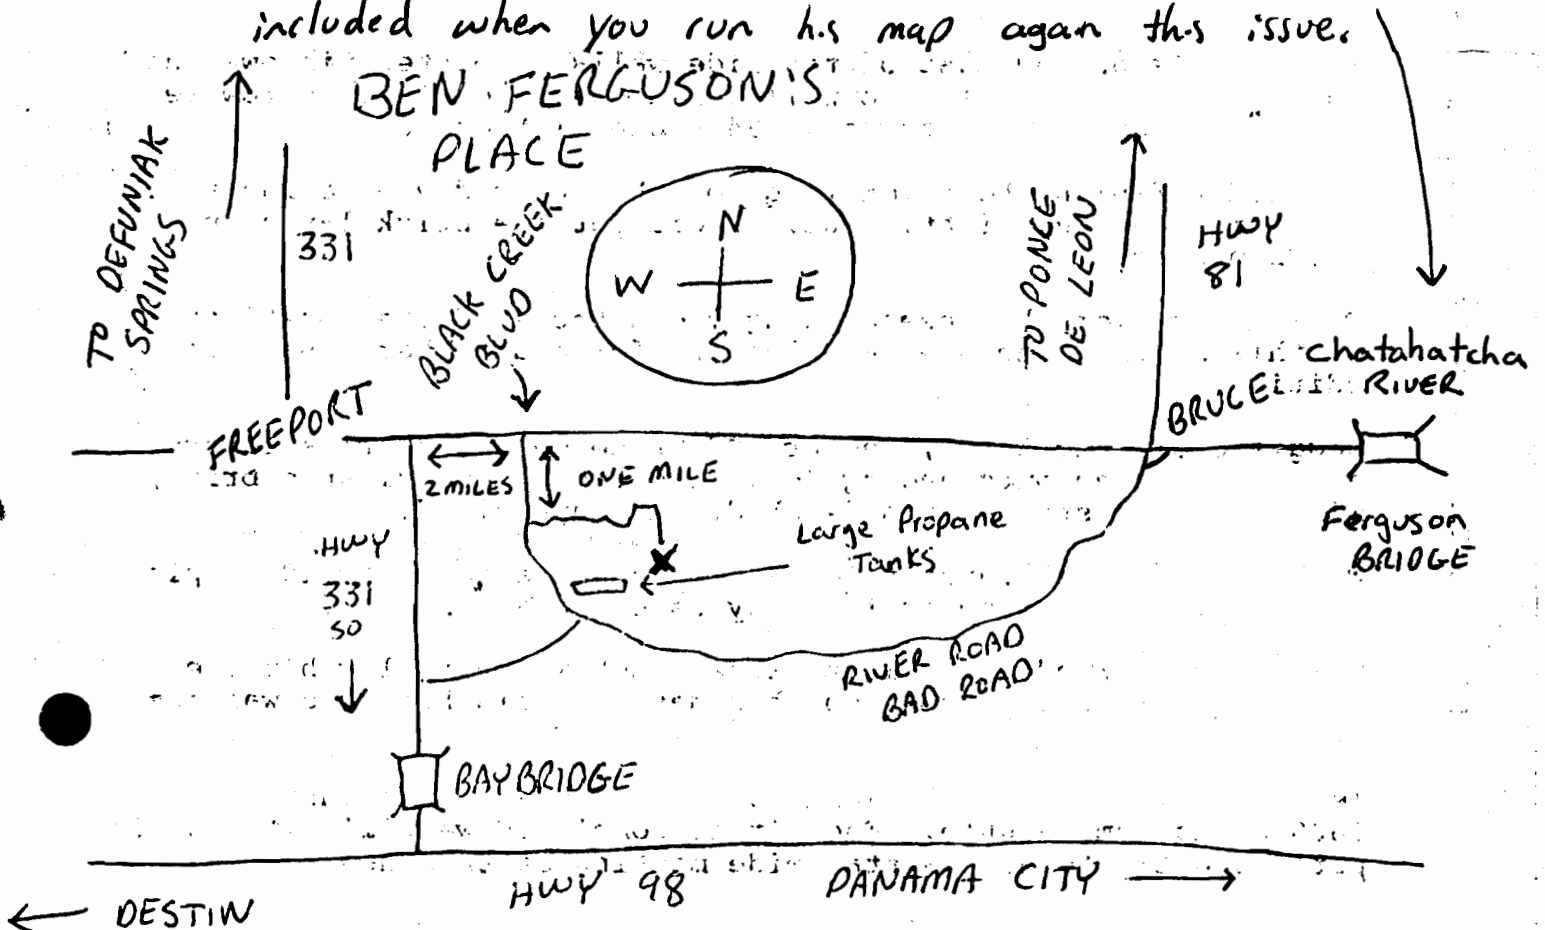 included when you run his map again this issue.
BEN FERGUSON'S
PLACE
TO DEFUNIAK
SPRINGS
331
BLACK CREEK
BLVD
N
W E
S
TO PONCE
DE LEON
HWY
81
Chatahatcha
RIVER
BRUCE
FREEPORT
2 MILES
ONE MILE
Large Propane
Tanks
Ferguson
BRIDGE
HWY
331
SO
RIVER ROAD
BAD ROAD
BAYBRIDGE
HWY 98
PANAMA CITY
DESTIN